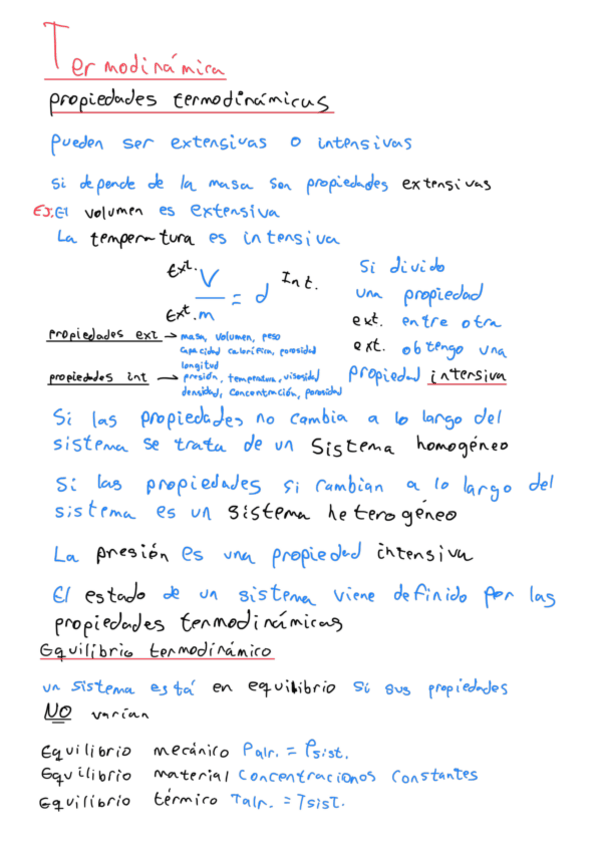 Termodinámica
propiedades termodinámicas
pueden ser extensivas o intensivas
si depende de la masa son propiedades extensivas
EJ:El volumen es extensiva
La temperatura es intensiva
Ext. V
Ext. m = d Int.
Si divido
una propiedad
ext. entre otra
ext. obtengo una
propiedad intensiva
propiedades ext → masa, volumen, peso
capacidad calorífica, porosidad
longitud
propiedades int → presión, temperatura, viscosidad
densidad, concentración, porosidad
Si las propiedades no cambia a lo largo del
sistema se trata de un sistema homogéneo
Si las propiedades si cambian a lo largo del
sistema es un sistema heterogéneo
La presión es una propiedad intensiva
El estado de un sistema viene definido por las
propiedades termodinámicas
Equilibrio termodinámico
un sistema está en equilibrio si sus propiedades
NO varían
Equilibrio mecánico Palr. = Psist.
Equilibrio material concentracionos constantes
Equilibrio térmico Talr. = Tsist.